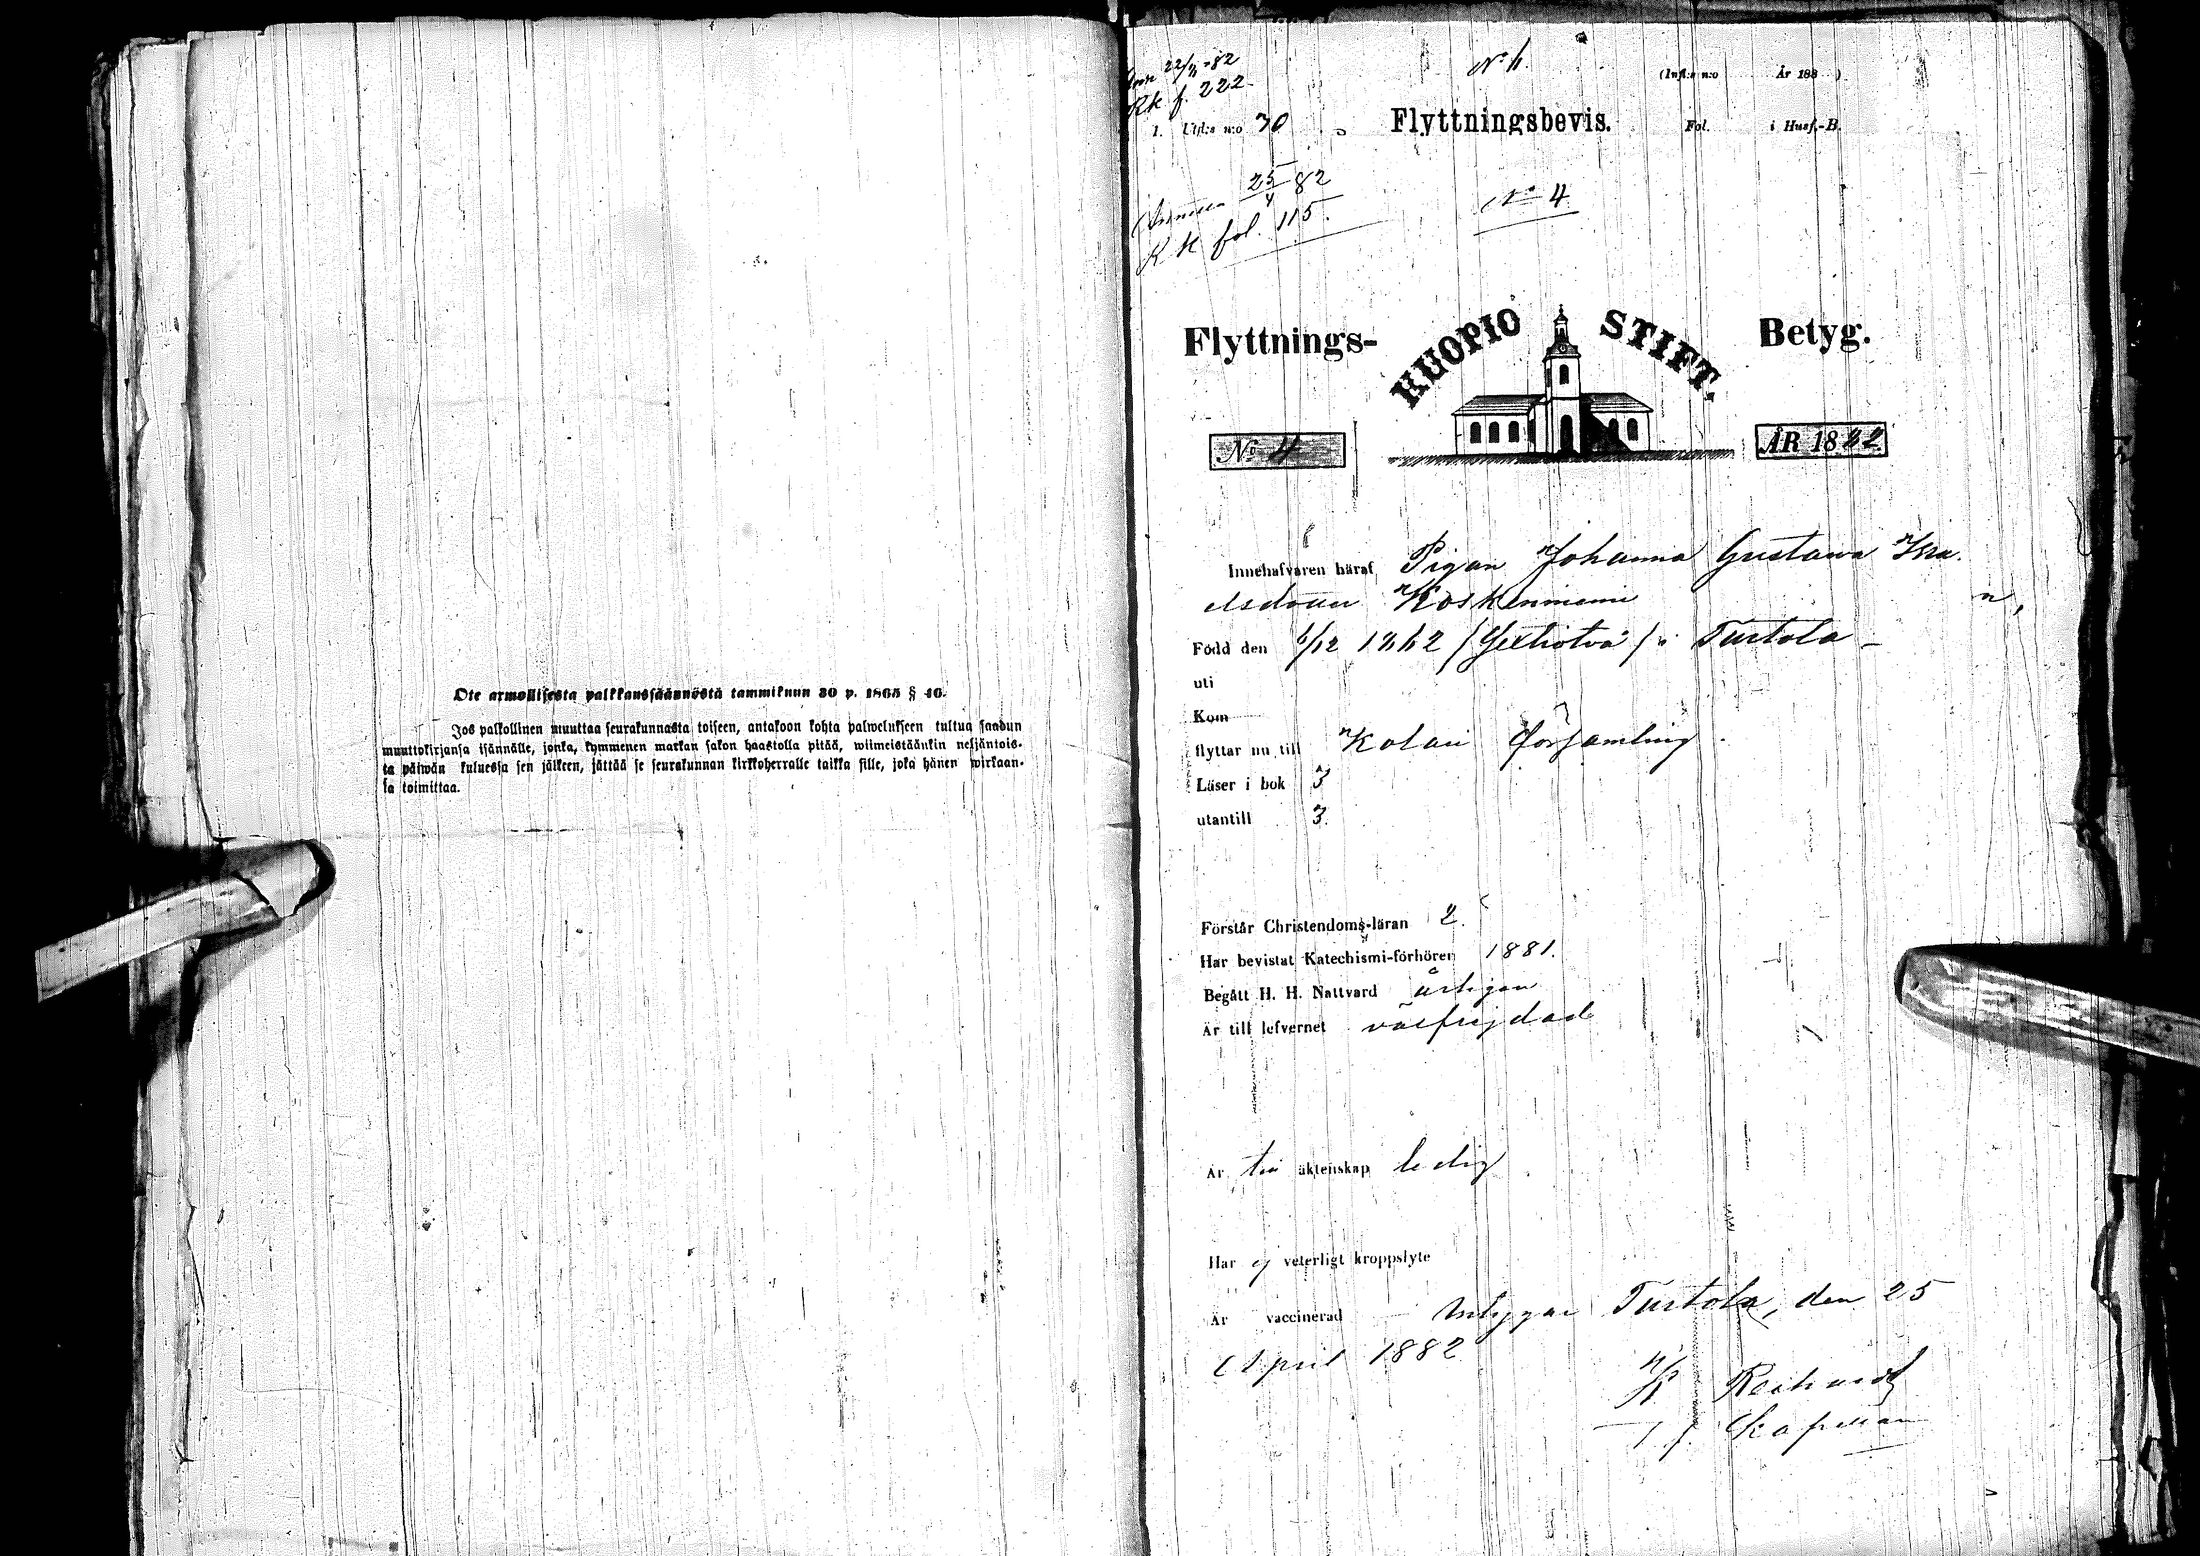 Ote armollisesta palkkaussäännöstä tammikuun 30 p. 1865 § 46.
Jos palkollinen muuttaa seurakunnasta toiseen, antakoon kohta palwelukseen tultua saadun
muuttokirjansa isännälle, jonka, kymmenen markan sakon haastolla pitää, wiimeistäänkin neljäntois-
ta päiwän kuluessa sen jälkeen, jättää se seurakunnan kirkkoherralle taikka sille, joka hänen wirkaan-
sa toimittaa.
22/4 -82
Rk f. 222
N:o
(Infl:s n:o År 188 )
1. Utfl:s n:o 30
Flyttningsbevis.
Fol. i Husf.-B.
25/4 82
Rk fol. 115.
N:o 4
Flyttnings-
KUOPIO STIFT.
Betyg.
No 4
ÅR 1882
Innehafvaren häraf Pigan Johanna Gustawa Isra
elsdotter Koskenniemi
Född den 6/12 1862 (Sextiotvå) i Turtola
uti
Kom
flyttar nu till Kolari församling.
Läser i bok 3
utantill 3.
Förstår Christendoms-läran 2.
Har bevistat Katechismi-förhören 1881.
Begått H. H. Nattvard årligen
Är till lefvernet välfrejdad
Är till äktenskap ledig
Har ej veterligt kroppslyte
Är vaccinerad intygar Turtola, den 25
April 1882
Kapellan